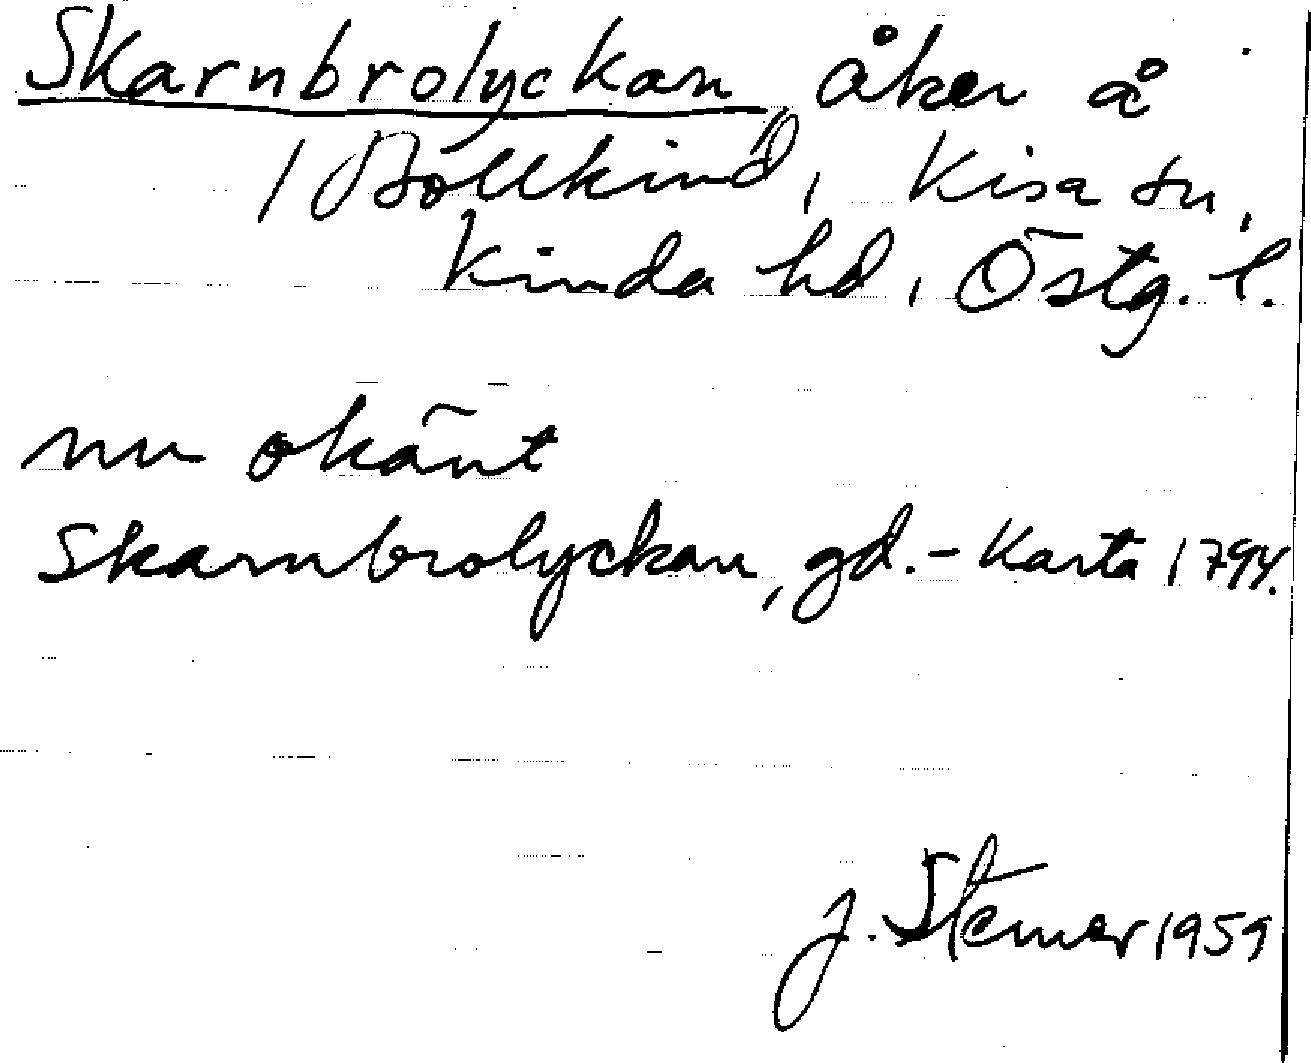 Skarnbrolyckan, åker å
Kisa sn,
Kinda hd, Östg. l.
nu okänt
Skarnbrolyckan, gd. - Karta 1794.
J. Stemer 1959